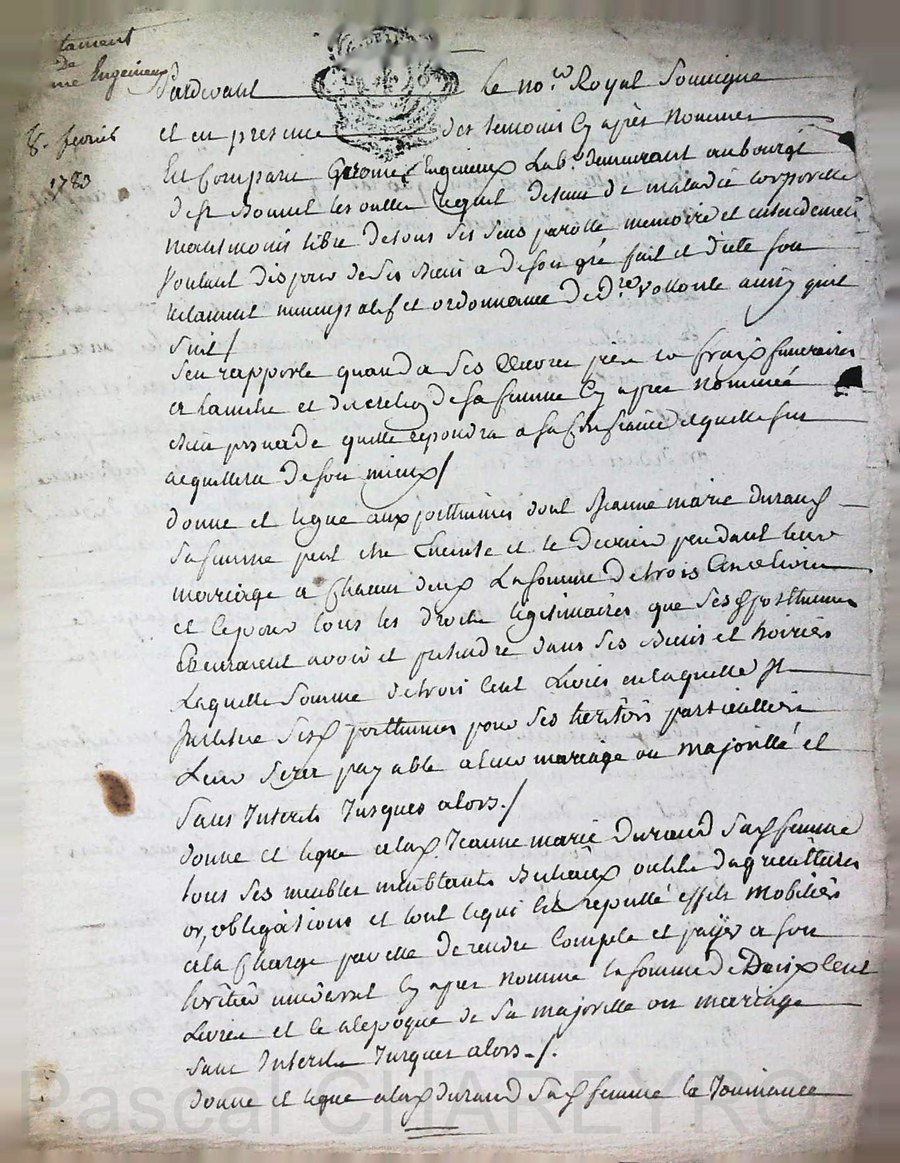 tament
de
me Engenieux
8. fevrié
1783
Pardevant le no.re Royal Soussigne
et en presence des temoins Cy apres Nommes
Est Comparu Gerome Engenieux Lab.r demeurant au bourg
de St Bonnet les oulles lequel detenu de maladie Corporelle
neantmoins libre de tous ses sens parolle memoire et entendement
Voulant disposer de ses Biens a de son gré fait et dicté son
testament nuncupatif et ordonnance de d.re Vollonté ainsy quil
suit /
Sen rapporte quand a ses Œuvres pies et fraix funeraires
et a la discretion de sa femme Cy apres Nommée
bien persuadé quelle repondra a sa Confiance et quelle sen
acquittera de son mieux /
donne et legue aux posthumes dont Jeanne marie durand
sa femme peut etre Enceinte et le Devenir pendant leur
mariage a Chacun deux La somme de trois Cent Livres
et ce pour tous les droits legitimaires que ses posthumes
pourraient avoir et pretendre dans ses Biens et hoiries
Laquelle Somme de trois Cent Livres en laquelle Il
Institue sesd posthumes pour ses heritiers particulliers
Leur sera payable a leur mariage ou majorité et
Sans Interets Jusques alors. /
donne et legue a lad. Jeanne marie Durand Sad femme
tous ses meubles meublants Bestiaux outils dagriculture
or, obligations et tout ce qui est reputté effets Mobiliers
a la Charge par elle de rendre Compte et payer a son
heritier universel Cy apres Nomme la somme de Deux Cent
Livres et ce a lepoque de Sa majorité ou mariage
Sans Interets Jusques alors. /.
donne et legue a lad durand Sad femme la Jouissance
Pascal CHAREYRON